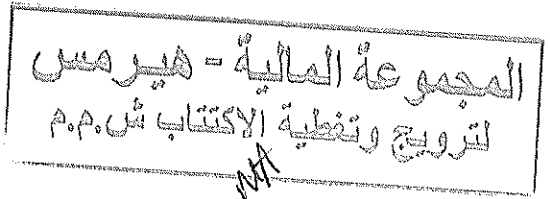 المجموعة المالية - هيرمس
لترويج وتغطية الاكتتاب ش.م.م